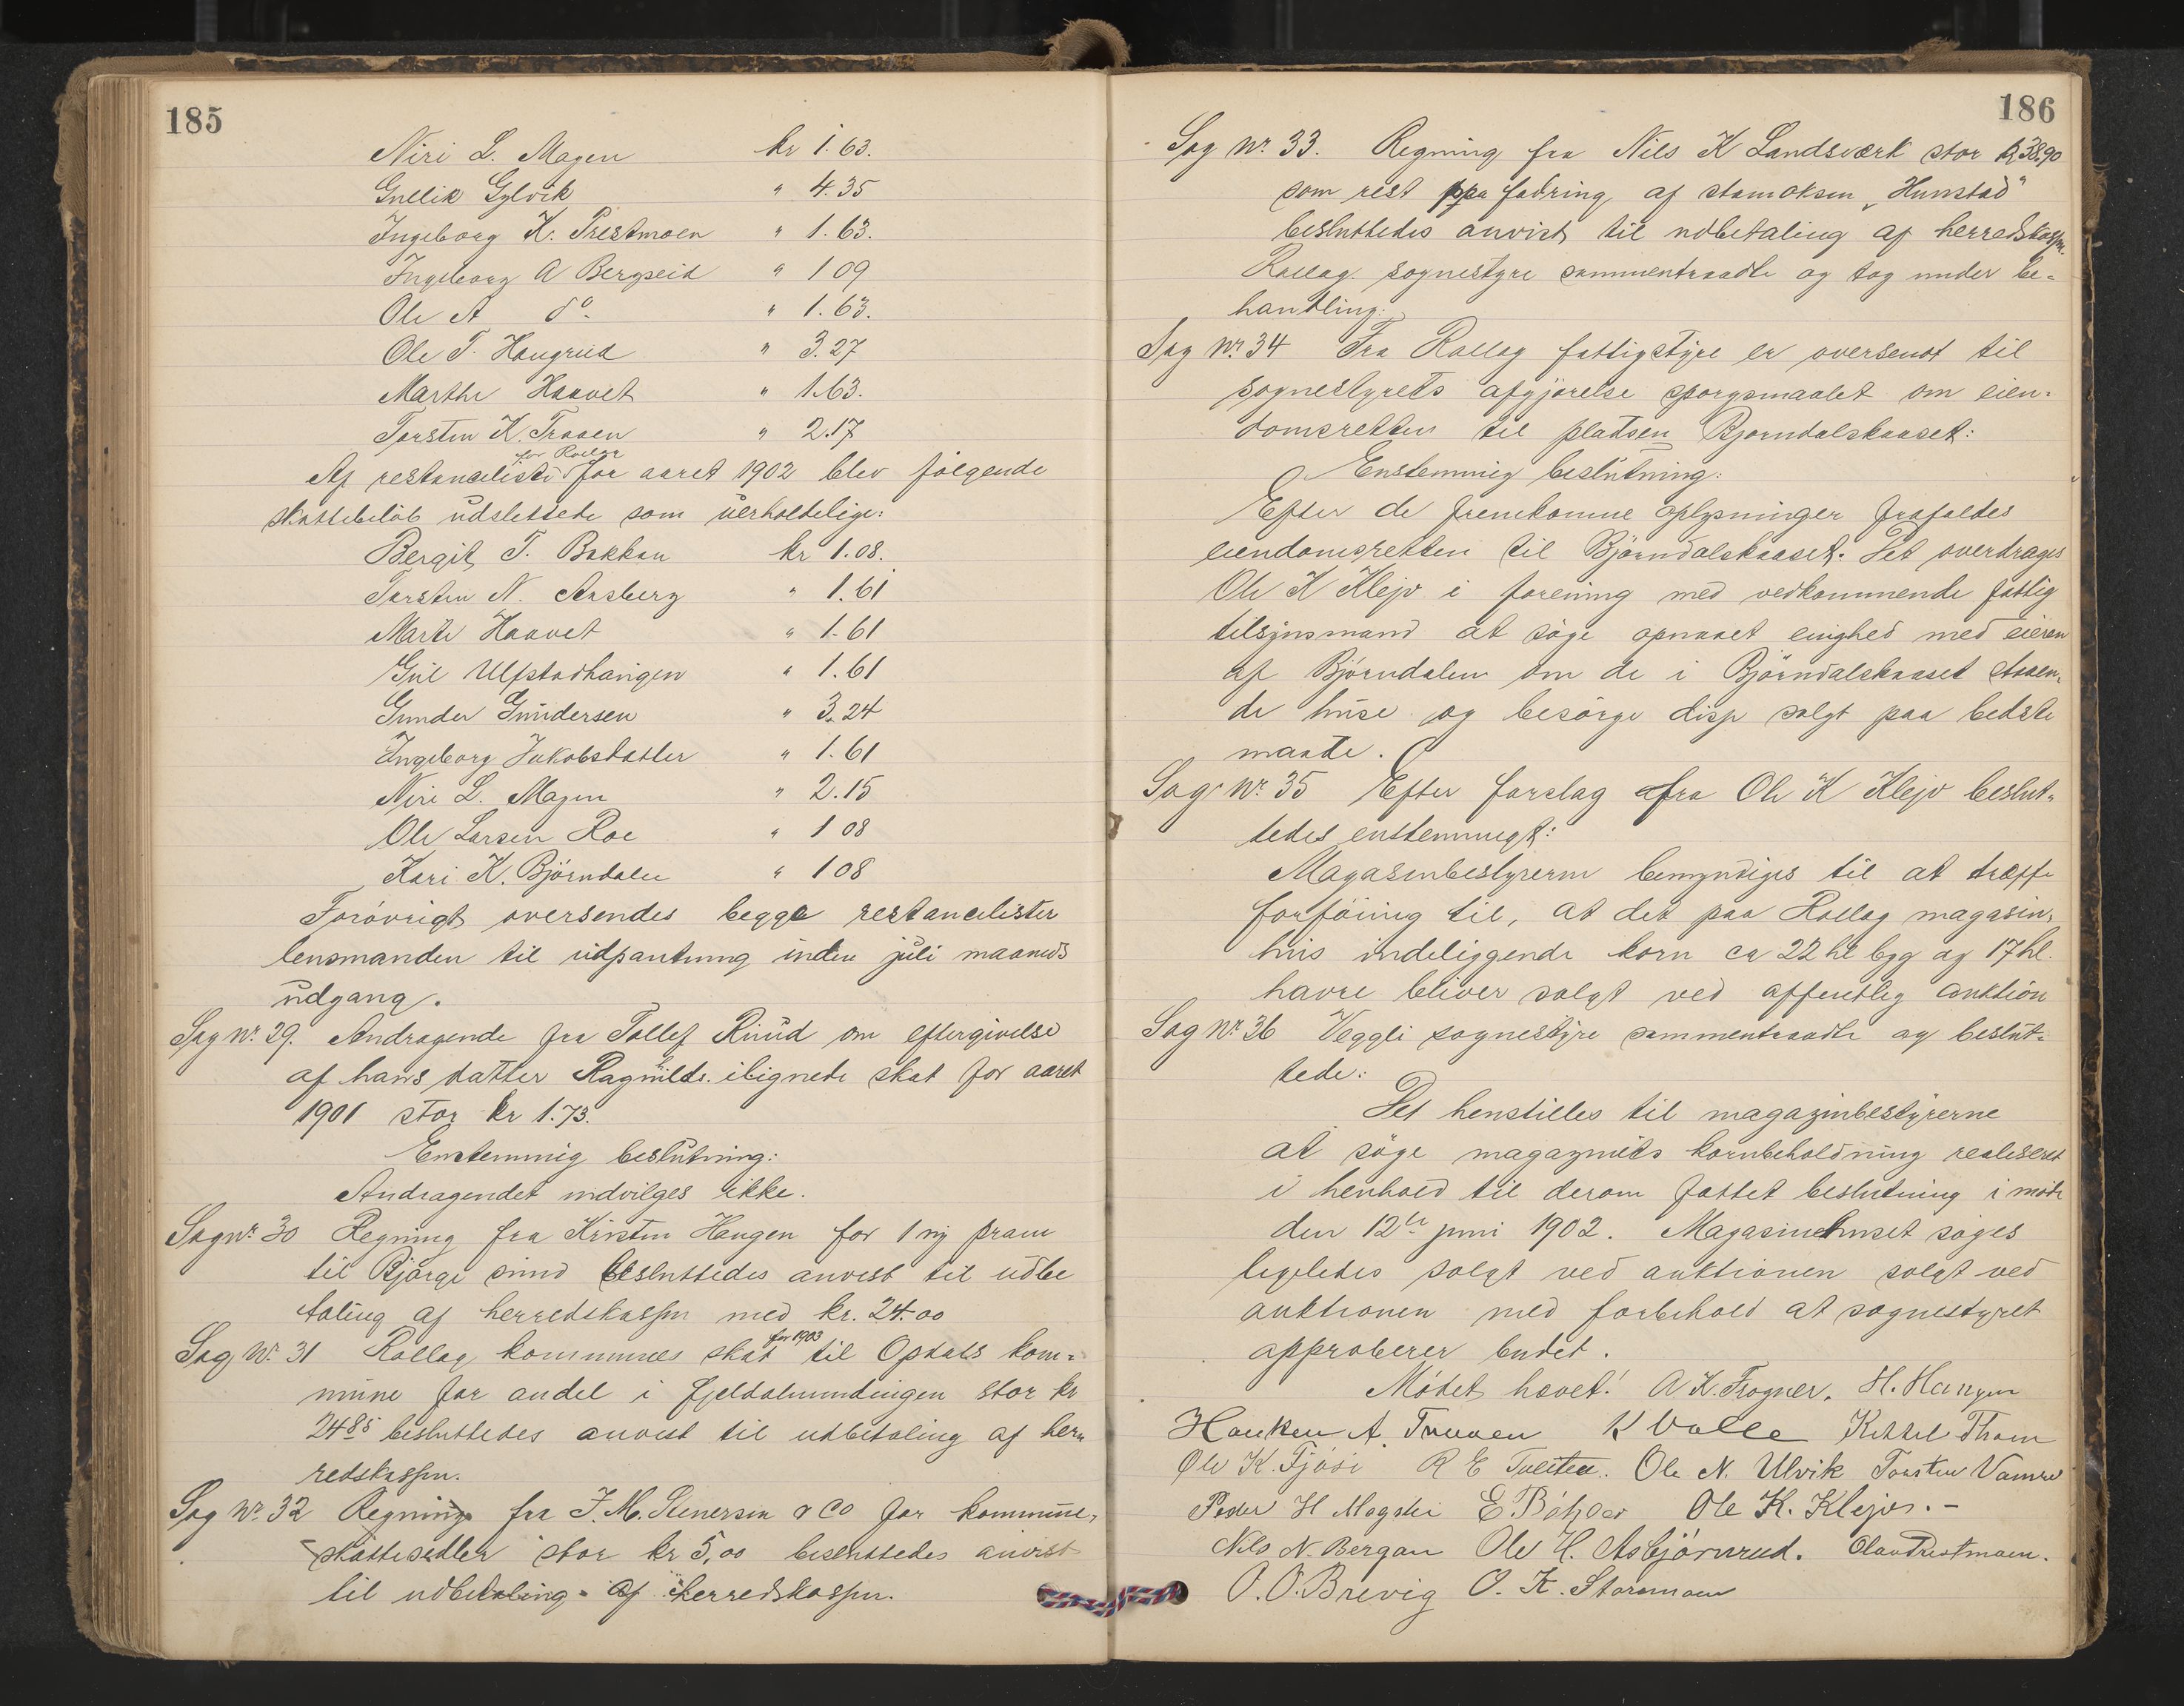 185
Niri L. Mogen kr 1.63.
Gullik Gylvik " 4.35
Ingeborg K. Prestmoen " 1.63.
Ingeborg A Bergseid " 1 09
Ole A do " 1.63.
Ole T. Haugrud " 3.27
Marthe Haavet " 1.63.
Torsten K. Traaen " 2.17
for Rollag
Af restanceliste for aaret 1902 blev følgende
skattebeløb udslettede som uerholdelige:
Bergit T. Bakkan kr 1.08.
Torsten N. Aasberg " 1.61
Marte Haavet " 1.61
Gul Ulfstadhaugen " 1.61
Gunder Gundersen " 3.24
Ingeborg Jakobskaatler " 1.61
Niri L. Mogen " 2.15
Ole Larsen Roe " 1 08
Kari K. Björndalen " 1 08
Forøvrigt oversendes begge restancelister
lensmanden til udpantning inden juli maaneds
udgang.
Sag nr. 29. Andragende fra Tollef Ruud om eftergivelse
af hans datter Ragnilds ilignede skat for aaret
1901 stor kr 1.73.
Enstemmig beslutning:
Andragendet indvilges ikke.
Sag nr. 30 Regning fra Kristen Haugen for 1 ny pram
til Bjørge sund besluttedes anvist til udbe
taling af herredskassen med kr. 24.00
Sag Nr. 31 Rollag kommunes skat for 1903 til Opdals kom=
mune for andel i fjeldalmindingen stor kr
24.85 besluttedes anvist til udbetaling af her
redskassen.
Sag Nr. 32 Regning fra J. M. Stenersen & Co for kommune=
skattesedler stor kr 5,00 besluttedes anvist
til udbetaling af herredskassen.
186
Sag Nr. 33. Regning fra Nils K Landsværk stor kr 38.90
som rest paa fodring af stamoksen „Hunstad"
besluttedes anvist til udbetaling af herredskassen.
Rollag sognestyre sammentraadte og tog under be=
handling:
Sag Nr. 34 Fra Rollag fattigstyre er oversendt til
sognestyrets afgjørelse spørgsmaalet om eien=
domsretten til pladsen Bjørndalskaaset:
Enstemmig beslutning:
Efter de fremkomne oplysninger frafaldes
eiendomsretten til Bjørndalskaaset. Det overdrages
Ole K Klejv i forening med vedkommende fattig
tilsynsmand at søge opnaaet enighed med eieren
af Bjørndalen om de i Bjørndalskaaset staaen=
de huse og besørge disse solgt paa bedste
maade.
Sag Nr. 35 Efter forslag fra Ole K Klejv beslut=
tedes enstemmigt:
Magasinbestyreren bemyndiges til at træffe
forføining til, at det paa Rollag magasin=
hus indeliggende korn ca 22 hl byg og 17 hl.
havre bliver solgt ved offentlig auktion
Sag Nr. 36 Veggli sognestyre sammentraadte og beslut=
tede:
Det henstilles til magazinbestyrerne
at søge magazinets kornbeholdning realiseret
i henhold til derom fattet beslutning i møde
den 12te juni 1902. Magasinehuset søges
ligeledes solgt ved auktionen solgt ved
auktionen med forbehold at sognestyret
approberer budet.
Mødet hævet! A K. Frogner. H. Haugen
Haaken A. Traaen K Valle Kittel Thoen
Ole K. Fjøsi R E Tveiten. Ole N. Ulvik Torsten Vamen
Peder H Mogslei E. Bøhaar Ole K. Klejv. –
Nils N. Bergan Ole H. Asbjørnrud. Olav Prestmoen.
O. O. Brevig O. K. Stormoen